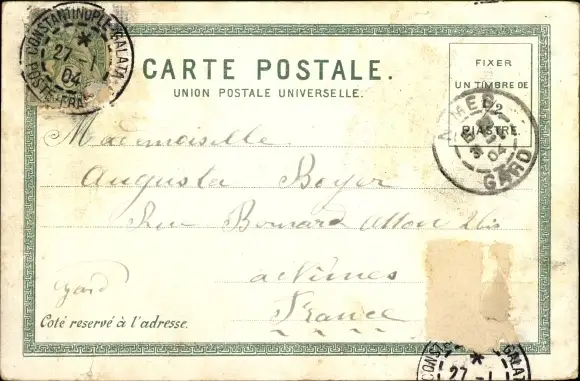 CONSTANTINOPLE-GALATA
27 - 1
04
POSTE FRA
CARTE POSTALE.
UNION POSTALE UNIVERSELLE.
FIXER
UN TIMBRE DE
2
PIASTRE
04
GARD
Mademoiselle
Augusta Boyer
Rue Bernard Atton 2bis
a Nimes
gard
France
Coté reservé à l'adresse.
CONSTANT GALATA
27 - 1